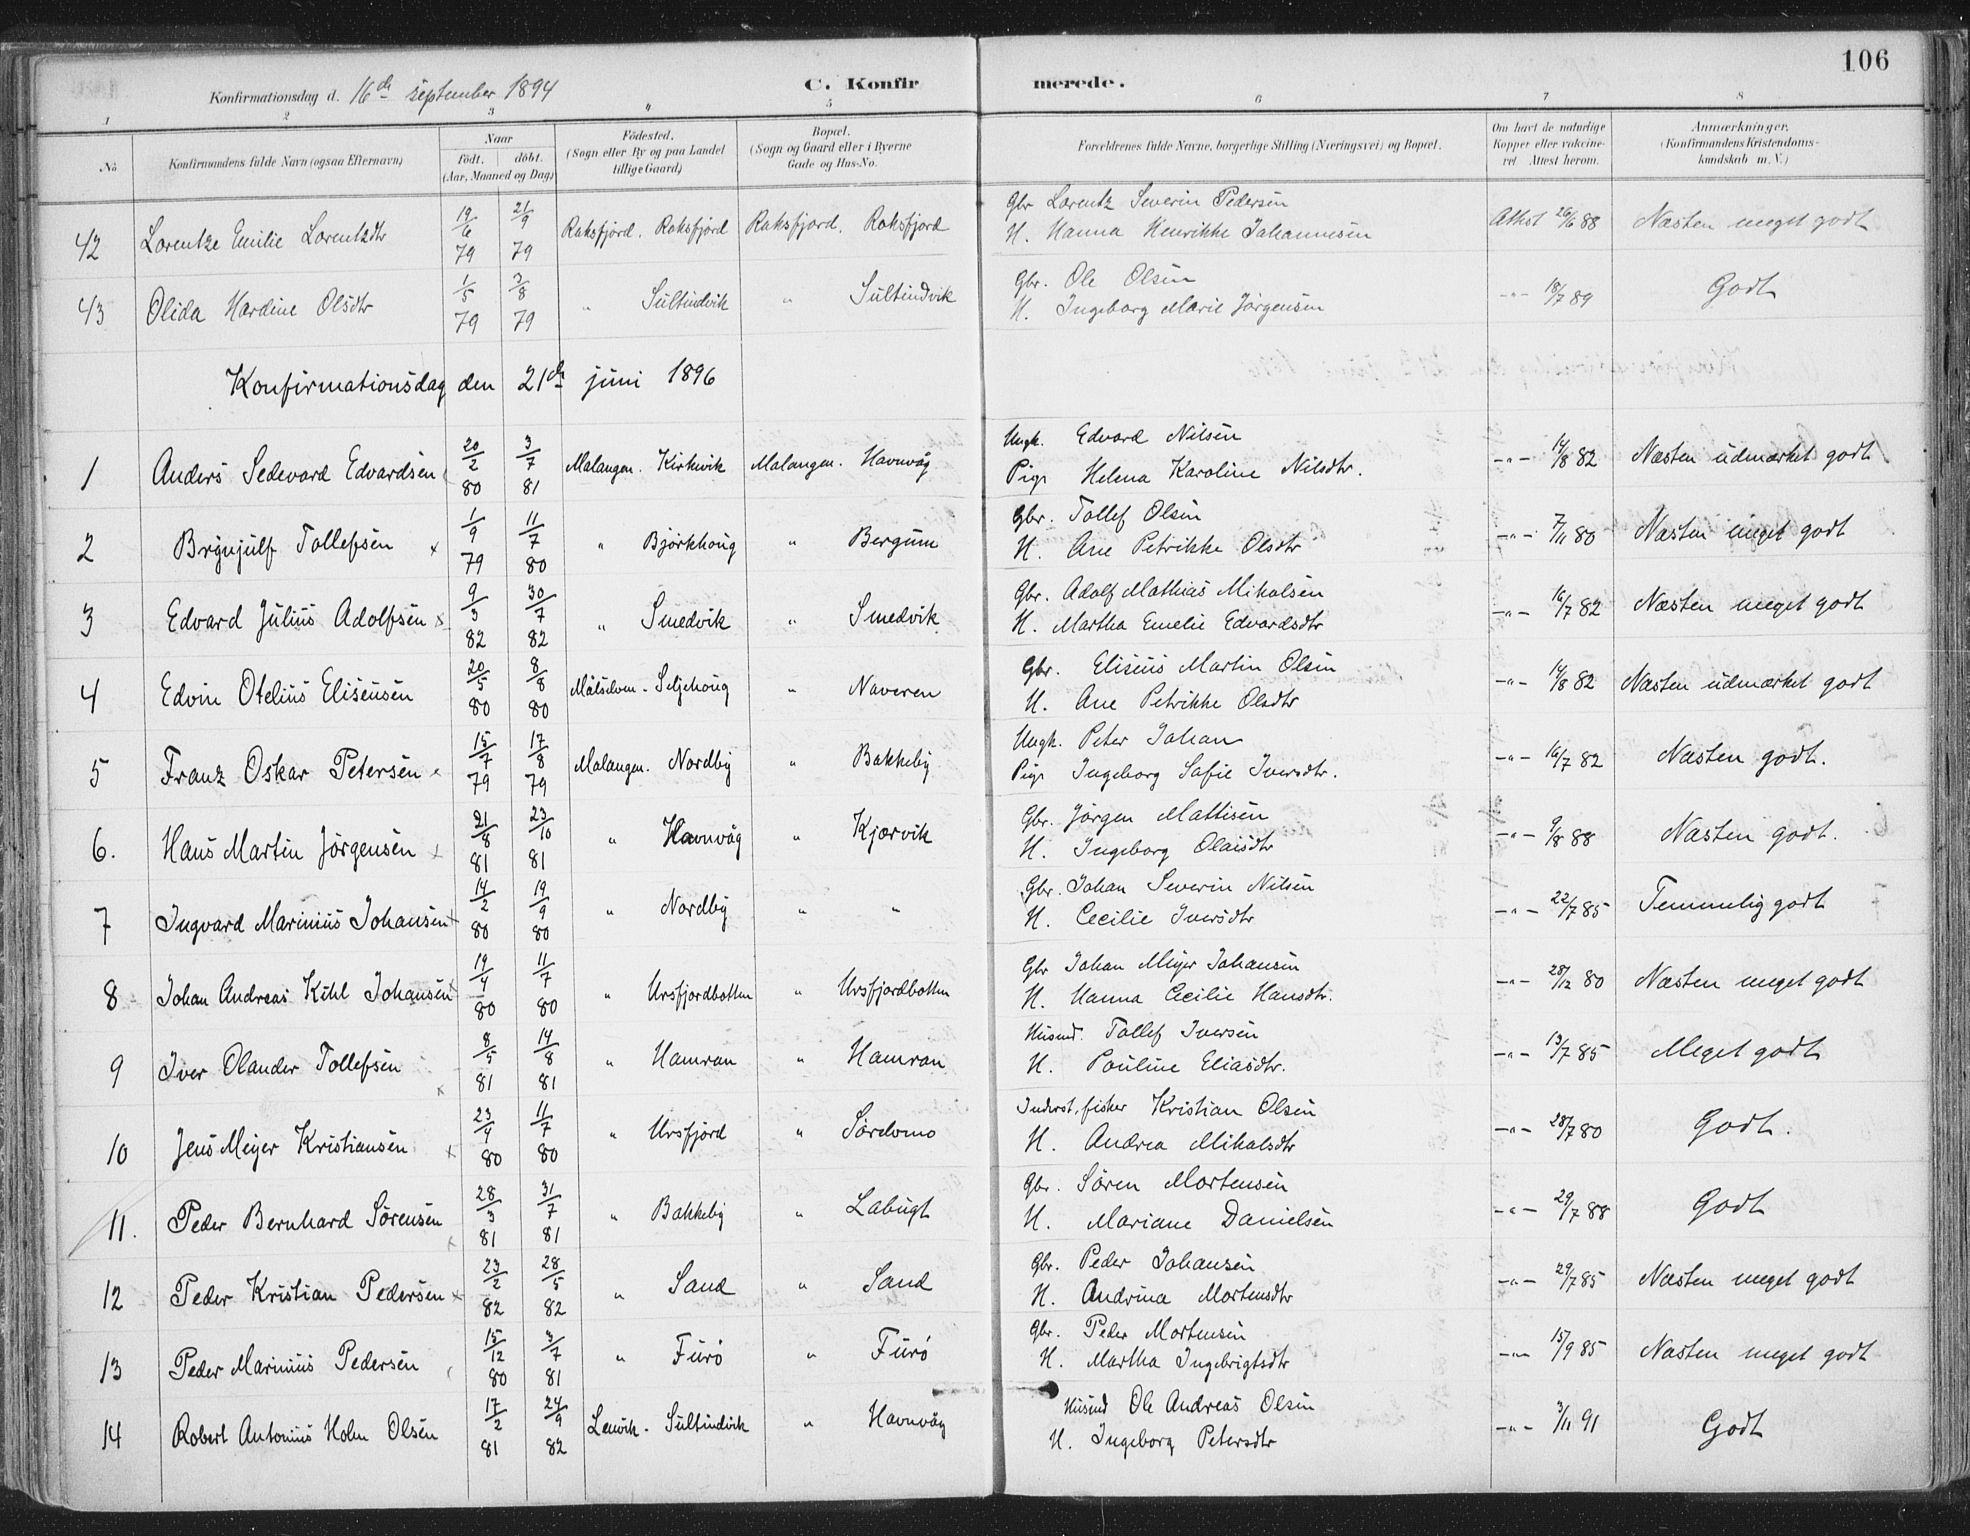 106
Konfirmationsdag d. 16de september 1894 C. Konfirmerede.
1 2 3 4 5 6 7 8
No Konfirmandens fulde Navn (ogsaa Efternavn) Naar födt. döbt. (Aar, Maaned og Dag) Födested. (Sogn eller By og paa Landet tillige Gaard) Bopæl. (Sogn og Gaard eller i Byerne Gade og Hus-No. Forældrenes fulde Navne, borgerlige Stilling (Næringsvei) og Bopæl. Om havt de naturlige Kopper eller vaccineret Attest herom. Anmærkninger. (Konfirmandens Kristendomskundskab m. V.)
42 Lorentze Emilie Lorentzdtr 19/6 79 21/9 79 Roksfjord. Roksfjord Roksfjord. Roksfjord Gbr Lorentz Severin Pedersen Attest 26/6 88 Næsten meget godt
H. Hanna Henrikke Johannesen
43 Olida Hardine Olsdtr 1/5 79 3/8 79 " Sultindvik " Sultindvik Gbr. Ole Olsen -"- 18/7 89 Godt
H. Ingeborg Marie Jörgensen
Konfirmationsdag den 21de juni 1896
1 Anders Sedevard Edvardsen 20/2 80 3/7 81 Malangen. Kirkevik Malangen. Havnvåg Ungk. Edvard Nilsen -"- 14/8 82 Næsten udmærket godt
Pige Helena Karoline Nilsdtr.
2 Brynjulf Tollefsen x 1/9 79 11/7 80 " Björkhoug " Bergum Gbr. Tollef Olsen -"- 7/11 80 Næsten meget godt
H. Ane Petrikke Olsdtr
3 Edvard Julius Adolfsen x 9/3 82 30/7 82 " Smedvik " Smedvik Gbr. Adolf Mathias Mikalsen -"- 16/7 82 Næsten meget godt
H. Martha Emelie Edvardsdtr
4 Edvin Otelius Eliseusen 20/5 80 8/8 80 Målselven. Seljehoug " Naveren Gbr. Eliseus Martin Olsen -"- 14/8 82 Næsten udmærket godt
H. Ane Petrikke Olsdtr
5 Franz Oskar Petersen x 15/7 79 17/8 79 Malangen. Nordby " Bakkeby Ungk. Peter Johan -"- 16/7 82 Næsten godt.
Pige Ingeborg Sofie Iversdtr.
6. Hans Martin Jörgensen x 21/8 81 23/10 81 " Havnvåg " Kjærvik Gbr. Jörgen Mattisen -"- 9/8 88 Næsten godt.
H. Ingeborg Olaisdtr
7 Ingvard Marinius Johansen x 14/2 80 19/9 80 " Nordby " " Gbr. Johan Severin Nilsen -"- 22/7 85 Temmelig godt
H. Cecilie Iversdtr
8 Johan Andreas Kihl Johansen x 19/4 80 11/7 80 " Ursfjordbotten " Ursfjordbotten Gbr Johan Meyer Johansen -"- 28/12 80 Næsten meget godt
H. Hanna Cecilie Hansdtr.
9 Iver Olander Tollefsen x 8/5 81 14/8 81 " Hamran " Hamran Husmd. Tollef Iversen -"- 13/7 85 Meget godt
H. Pauline Eliasdtr.
10 Jens Meyer Kristiansen x 23/4 80 11/7 80 " Ursfjord " Sördomo Inderst, fisker Kristian Olsen -"- 28/7 80 Godt.
H. Andrea Mikalsdtr
11. Peder Bernhard Sörensen x 28/3 81 31/7 81 " Bakkeby " Labugt Gbr. Sören Mortensen -"- 29/7 88 Godt
H. Mariane Danielsen
12 Peder Kristian Pedersen x 23/2 82 28/5 82 " Sand " Sand Gbr. Peder Johansen -"- 29/7 85 Næsten meget godt
H. Andrina Mortensdtr
13 Peder Marinius Pedersen 15/12 80 3/7 81 " Furö " Furö Gbr. Peder Mortensen -"- 15/9 85 Næsten meget godt
H. Martha Ingebrigtsdtr
14 Robert Antonius Holm Olsen 17/2 81 24/9 82 Lenvik. Sultindvik " Havnvåg Husmd Ole Andreas Olsen -"- 3/11 91 Godt
H. Ingeborg Petersdtr